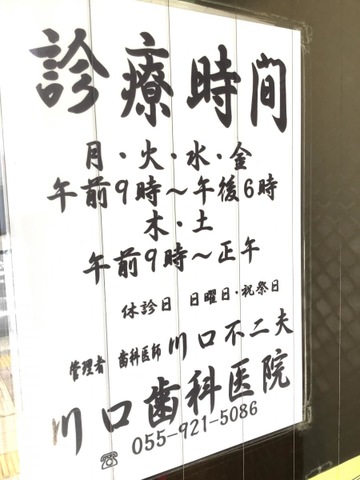 診療時間
月・火・水・金
午前9時～午後6時
木・土
午前9時～正午
休診日 日曜日・祝祭日
管理者 歯科医師 川口不二夫
川口歯科医院
☎ 055-921-5086